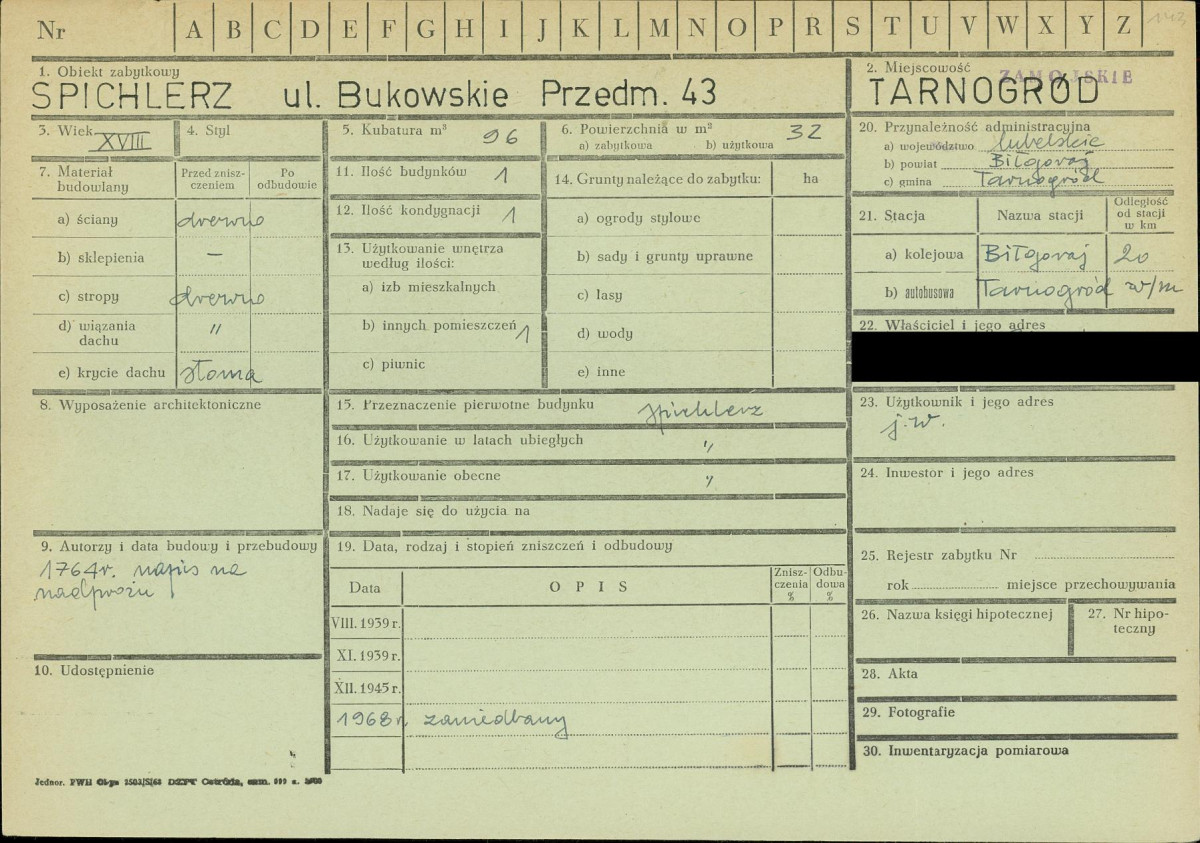 Nr A B C D E F G H I J K L M N O P R S T U V W X Y Z
1. Obiekt zabytkowy
SPICHLERZ ul. Bukowskie Przedm. 43
2. Miejscowość
ZAMOJSKIE
TARNOGRÓD
3. Wiek XVIII
4. Styl
5. Kubatura m³ 96
6. Powierzchnia w m² 32
a) zabytkowa b) użytkowa
7. Materiał budowlany
Przed znisz-
czeniem
Po
odbudowie
a) ściany drewno
b) sklepienia –
c) stropy drewno
d) wiązania
dachu "
e) krycie dachu słoma
8. Wyposażenie architektoniczne
9. Autorzy i data budowy i przebudowy
1764r. napis na
nadprożu
10. Udostępnienie
11. Ilość budynków 1
12. Ilość kondygnacji 1
13. Użytkowanie wnętrza
według ilości:
a) izb mieszkalnych
b) innych pomieszczeń 1
c) piwnic
14. Grunty należące do zabytku: ha
a) ogrody stylowe
b) sady i grunty uprawne
c) lasy
d) wody
e) inne
15. Przeznaczenie pierwotne budynku spichlerz
16. Użytkowanie w latach ubiegłych "
17. Użytkowanie obecne "
18. Nadaje się do użycia na
19. Data, rodzaj i stopień zniszczeń i odbudowy
Data OPIS
Znisz-
czenia
%
Odbu-
dowa
%
VIII. 1939 r.
XI. 1939 r.
XII. 1945 r.
1968r. zaniedbany
20. Przynależność administracyjna
a) województwo lubelskie
b) powiat Biłgoraj
c) gmina Tarnogród
21. Stacja
Nazwa stacji
Odległość
od stacji
w km
a) kolejowa Biłgoraj 20
b) autobusowa Tarnogród w/m
22. Właściciel i jego adres
23. Użytkownik i jego adres
j.w.
24. Inwestor i jego adres
25. Rejestr zabytku Nr
rok miejsce przechowywania
26. Nazwa księgi hipotecznej
27. Nr hipo-
teczny
28. Akta
29. Fotografie
30. Inwentaryzacja pomiarowa
Jednor. PWH